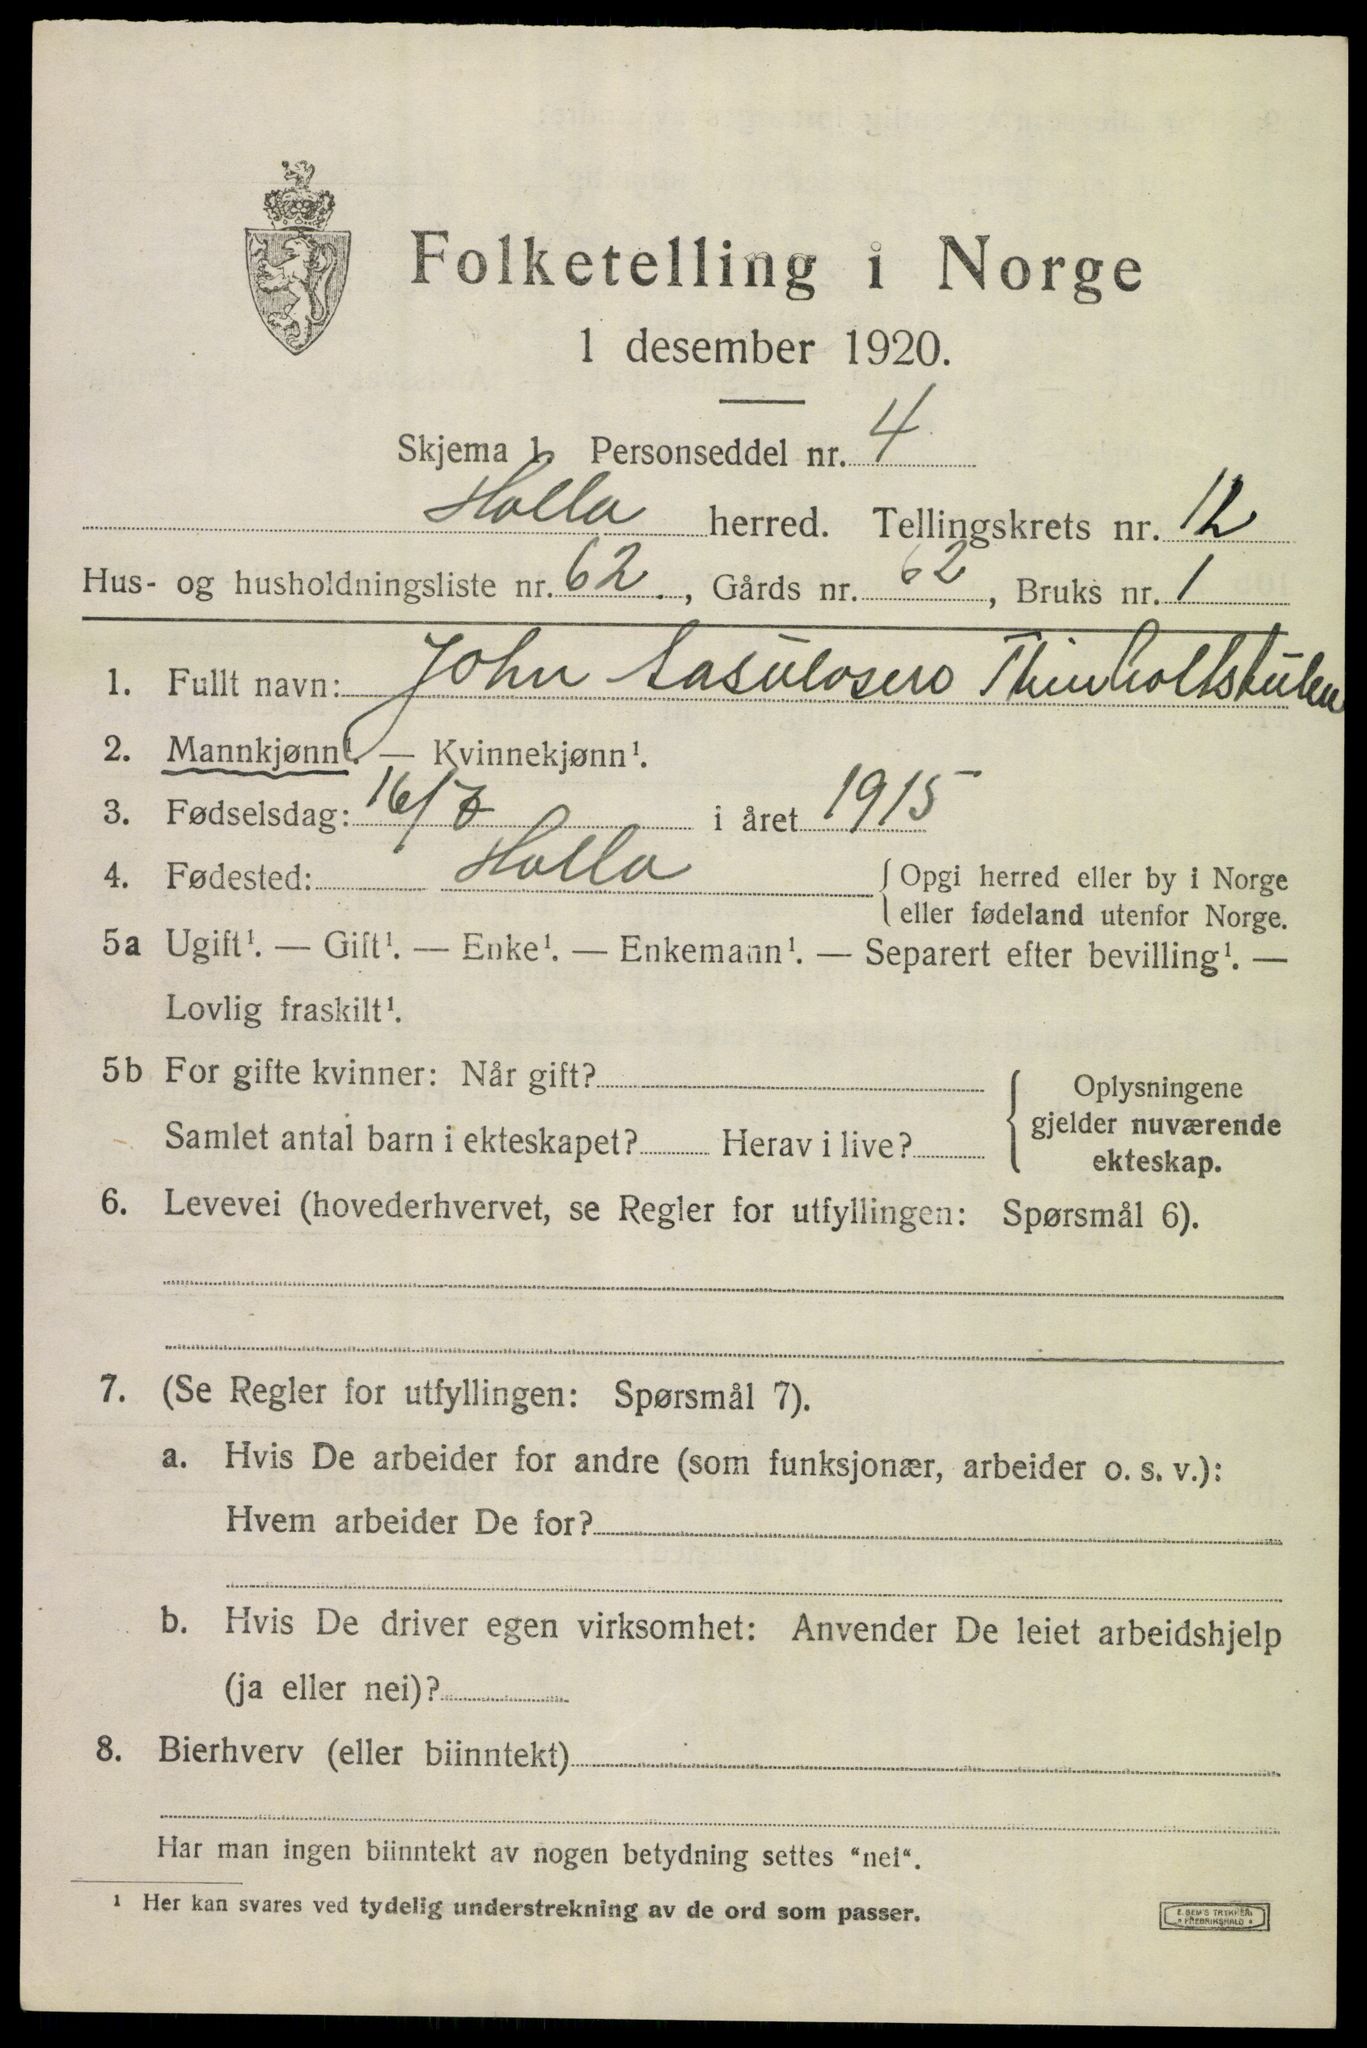 Folketelling i Norge
1 desember 1920.
Skjema 1 Personseddel nr. 4
Holla herred. Tellingskrets nr. 12
Hus- og husholdningsliste nr. 62., Gårds nr. 62, Bruks nr. 1
1. Fullt navn: John
2. Mannkjønn¹. — Kvinnekjønn¹.
3. Fødselsdag: 16/7 i året 1915
4. Fødested: Holla { Opgi herred eller by i Norge
eller fødeland utenfor Norge.
5a Ugift¹. — Gift¹. — Enke¹. — Enkemann¹. — Separert efter bevilling¹. —
Lovlig fraskilt¹.
5b For gifte kvinner: Når gift?
Samlet antal barn i ekteskapet? Herav i live?
{ Oplysningene
gjelder nuværende
ekteskap.
6. Levevei (hovederhvervet, se Regler for utfyllingen: Spørsmål 6).
7. (Se Regler for utfyllingen: Spørsmål 7).
a. Hvis De arbeider for andre (som funksjonær, arbeider o. s. v.):
Hvem arbeider De for?
b. Hvis De driver egen virksomhet: Anvender De leiet arbeidshjelp
(ja eller nei)?
8. Bierhverv (eller biinntekt)
Har man ingen biinntekt av nogen betydning settes "nei".
¹ Her kan svares ved tydelig understrekning av de ord som passer.
E. SEM'S TRYKKERI
FREDRIKSHALD